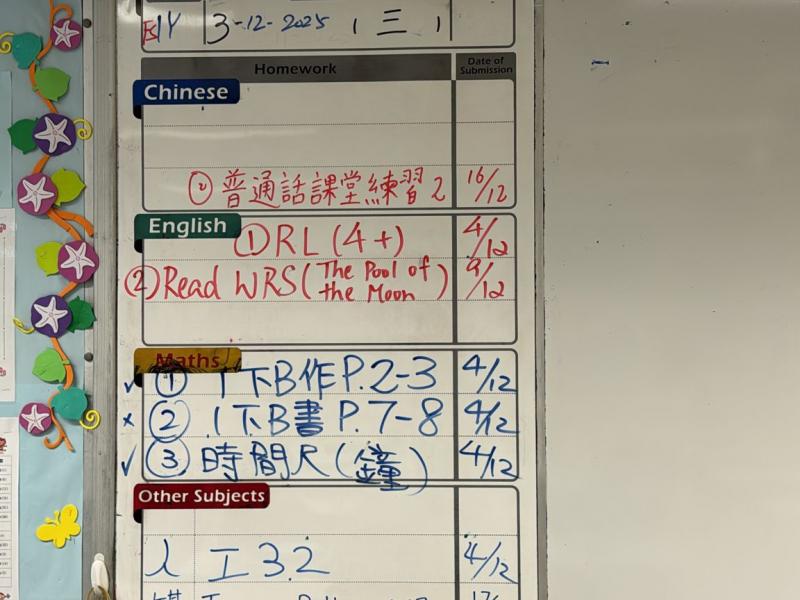 1Y 3-12-2025 (三)
Homework Date of Submission
Chinese
② 普通話課堂練習 2 16/12
English
① RL (4+) 4/12
② Read WRS (The Pool of the Moon) 9/12
Maths
✓ ① 1下B作 P.2-3 4/12
x ② 1下B書 P.7-8 4/12
✓ ③ 時間尺(鐘) 4/12
Other Subjects
人 工 3.2 4/12